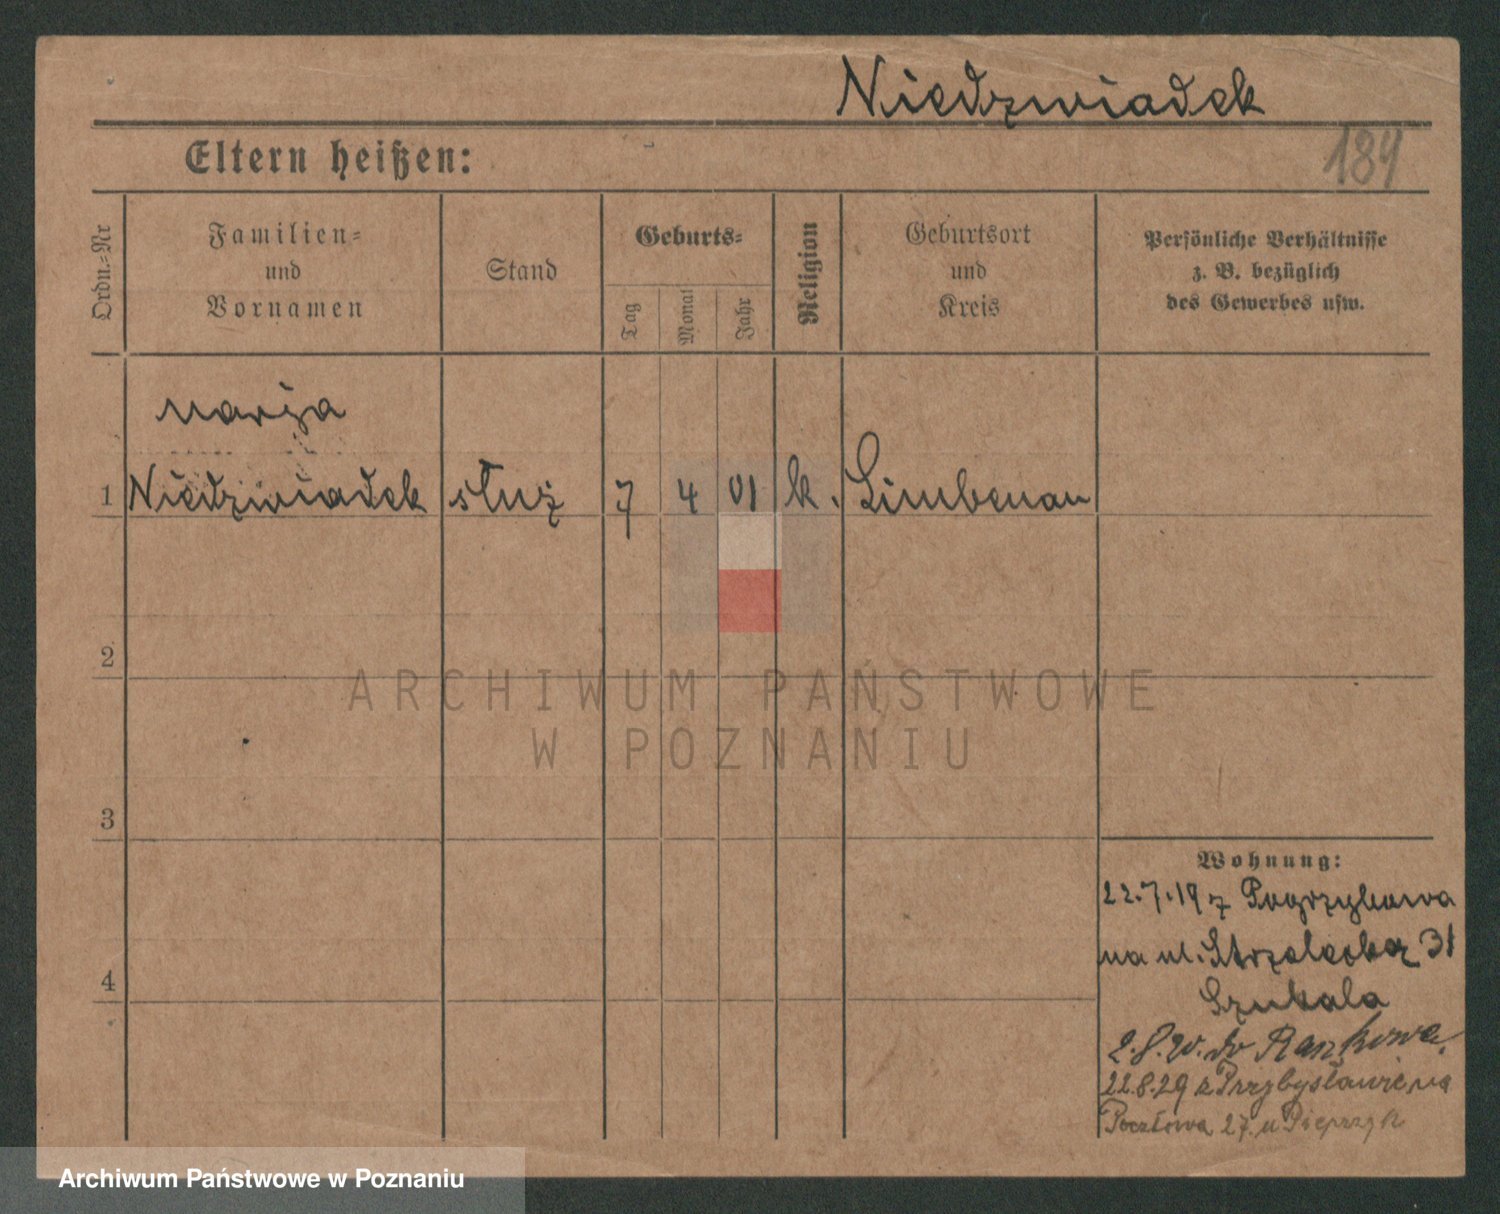 Niedzwiadek
Eltern heißen:
184
Ordn.-Nr
Familien-
und
Vornamen
Stand
Geburts-
Tag
Monat
Jahr
Religion
Geburtsort
und
Kreis
Persönliche Verhältnisse
z. B. bezüglich
des Gewerbes usw.
Marja
1 Niedzwiadek służ 7 4 01 k. Limbenau
2
ARCHIWUM PAŃSTWOWE
W POZNANIU
3
Wohnung:
22.7.19 z Pogrzybowa
na ul. Strzelecka 31
Szukala
4
2.8.20. do Raszkowa.
22.8.29 z Przybysławic na
Pocztowa 27 u Pieprzyk
Archiwum Państwowe w Poznaniu